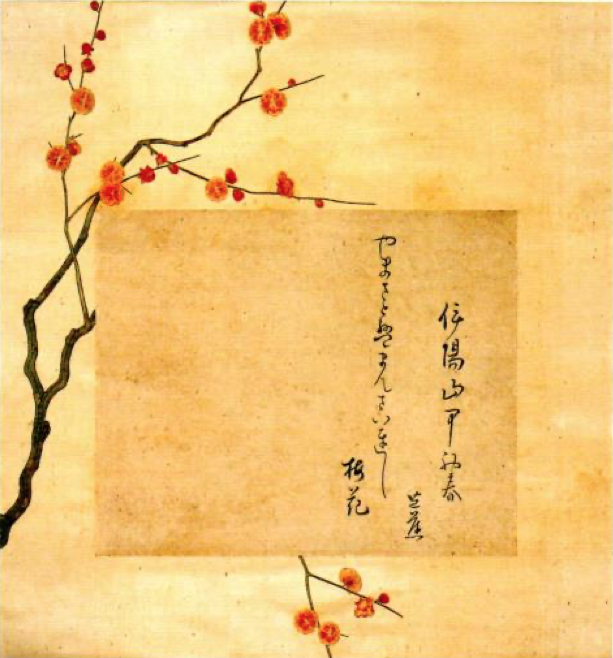 伊陽山中初春
芭蕉
やまさとはまんさい遅し
梅花